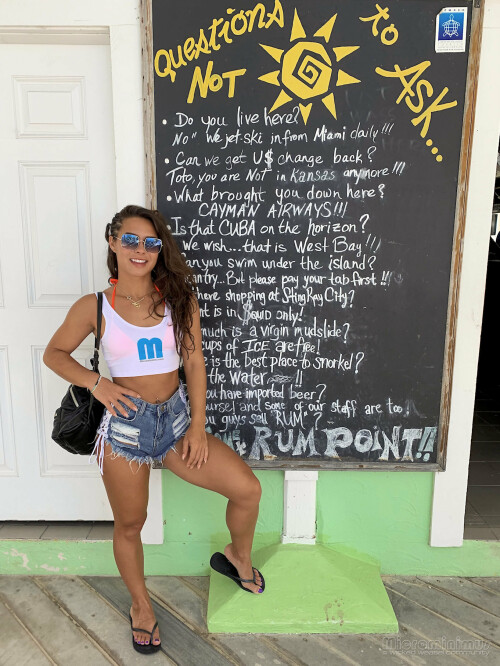 Questions to
Not Ask...
• Do you live here?
No" We jet-ski in from Miami daily!!!
• Can we get U$ change back?
Toto, you are Not in Kansas anymore!!!
• What brought you down here?
CAYMAN AIRWAYS!!!
• Is that CUBA on the horizon?
We wish...that is West Bay!!!
an you swim under the island?
an try...But please pay your tab first!!!
here shopping at StingRay CiTy?
nt is in $quid only!
much is a virgin mudslide?
cups of ICE are free!
e is the best place to snorkel?
the Water !!
ou have imported beer?
ourself and some of our staff are too!
ou guys sell "RUM"?
RUM POINT!!
m
Microminimus